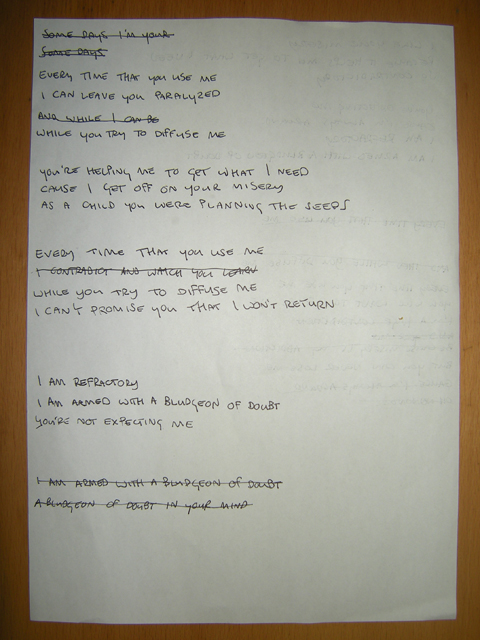 SOME DAYS I'M YOUR
SOME DAYS
EVERY TIME THAT YOU USE ME
I CAN LEAVE YOU PARALYZED
AND WHILE I CAN BE
WHILE YOU TRY TO DIFFUSE ME
YOU'RE HELPING ME TO GET WHAT I NEED
CAUSE I GET OFF ON YOUR MISERY
AS A CHILD YOU WERE PLANNING THE SEEDS
EVERY TIME THAT YOU USE ME
I CONTRADICT AND WATCH YOU LEARN
WHILE YOU TRY TO DIFFUSE ME
I CAN'T PROMISE YOU THAT I WON'T RETURN
I AM REFRACTORY
I AM ARMED WITH A BLUDGEON OF DOUBT
YOU'RE NOT EXPECTING ME
I AM ARMED WITH A BLUDGEON OF DOUBT
A BLUDGEON OF DOUBT IN YOUR MIND